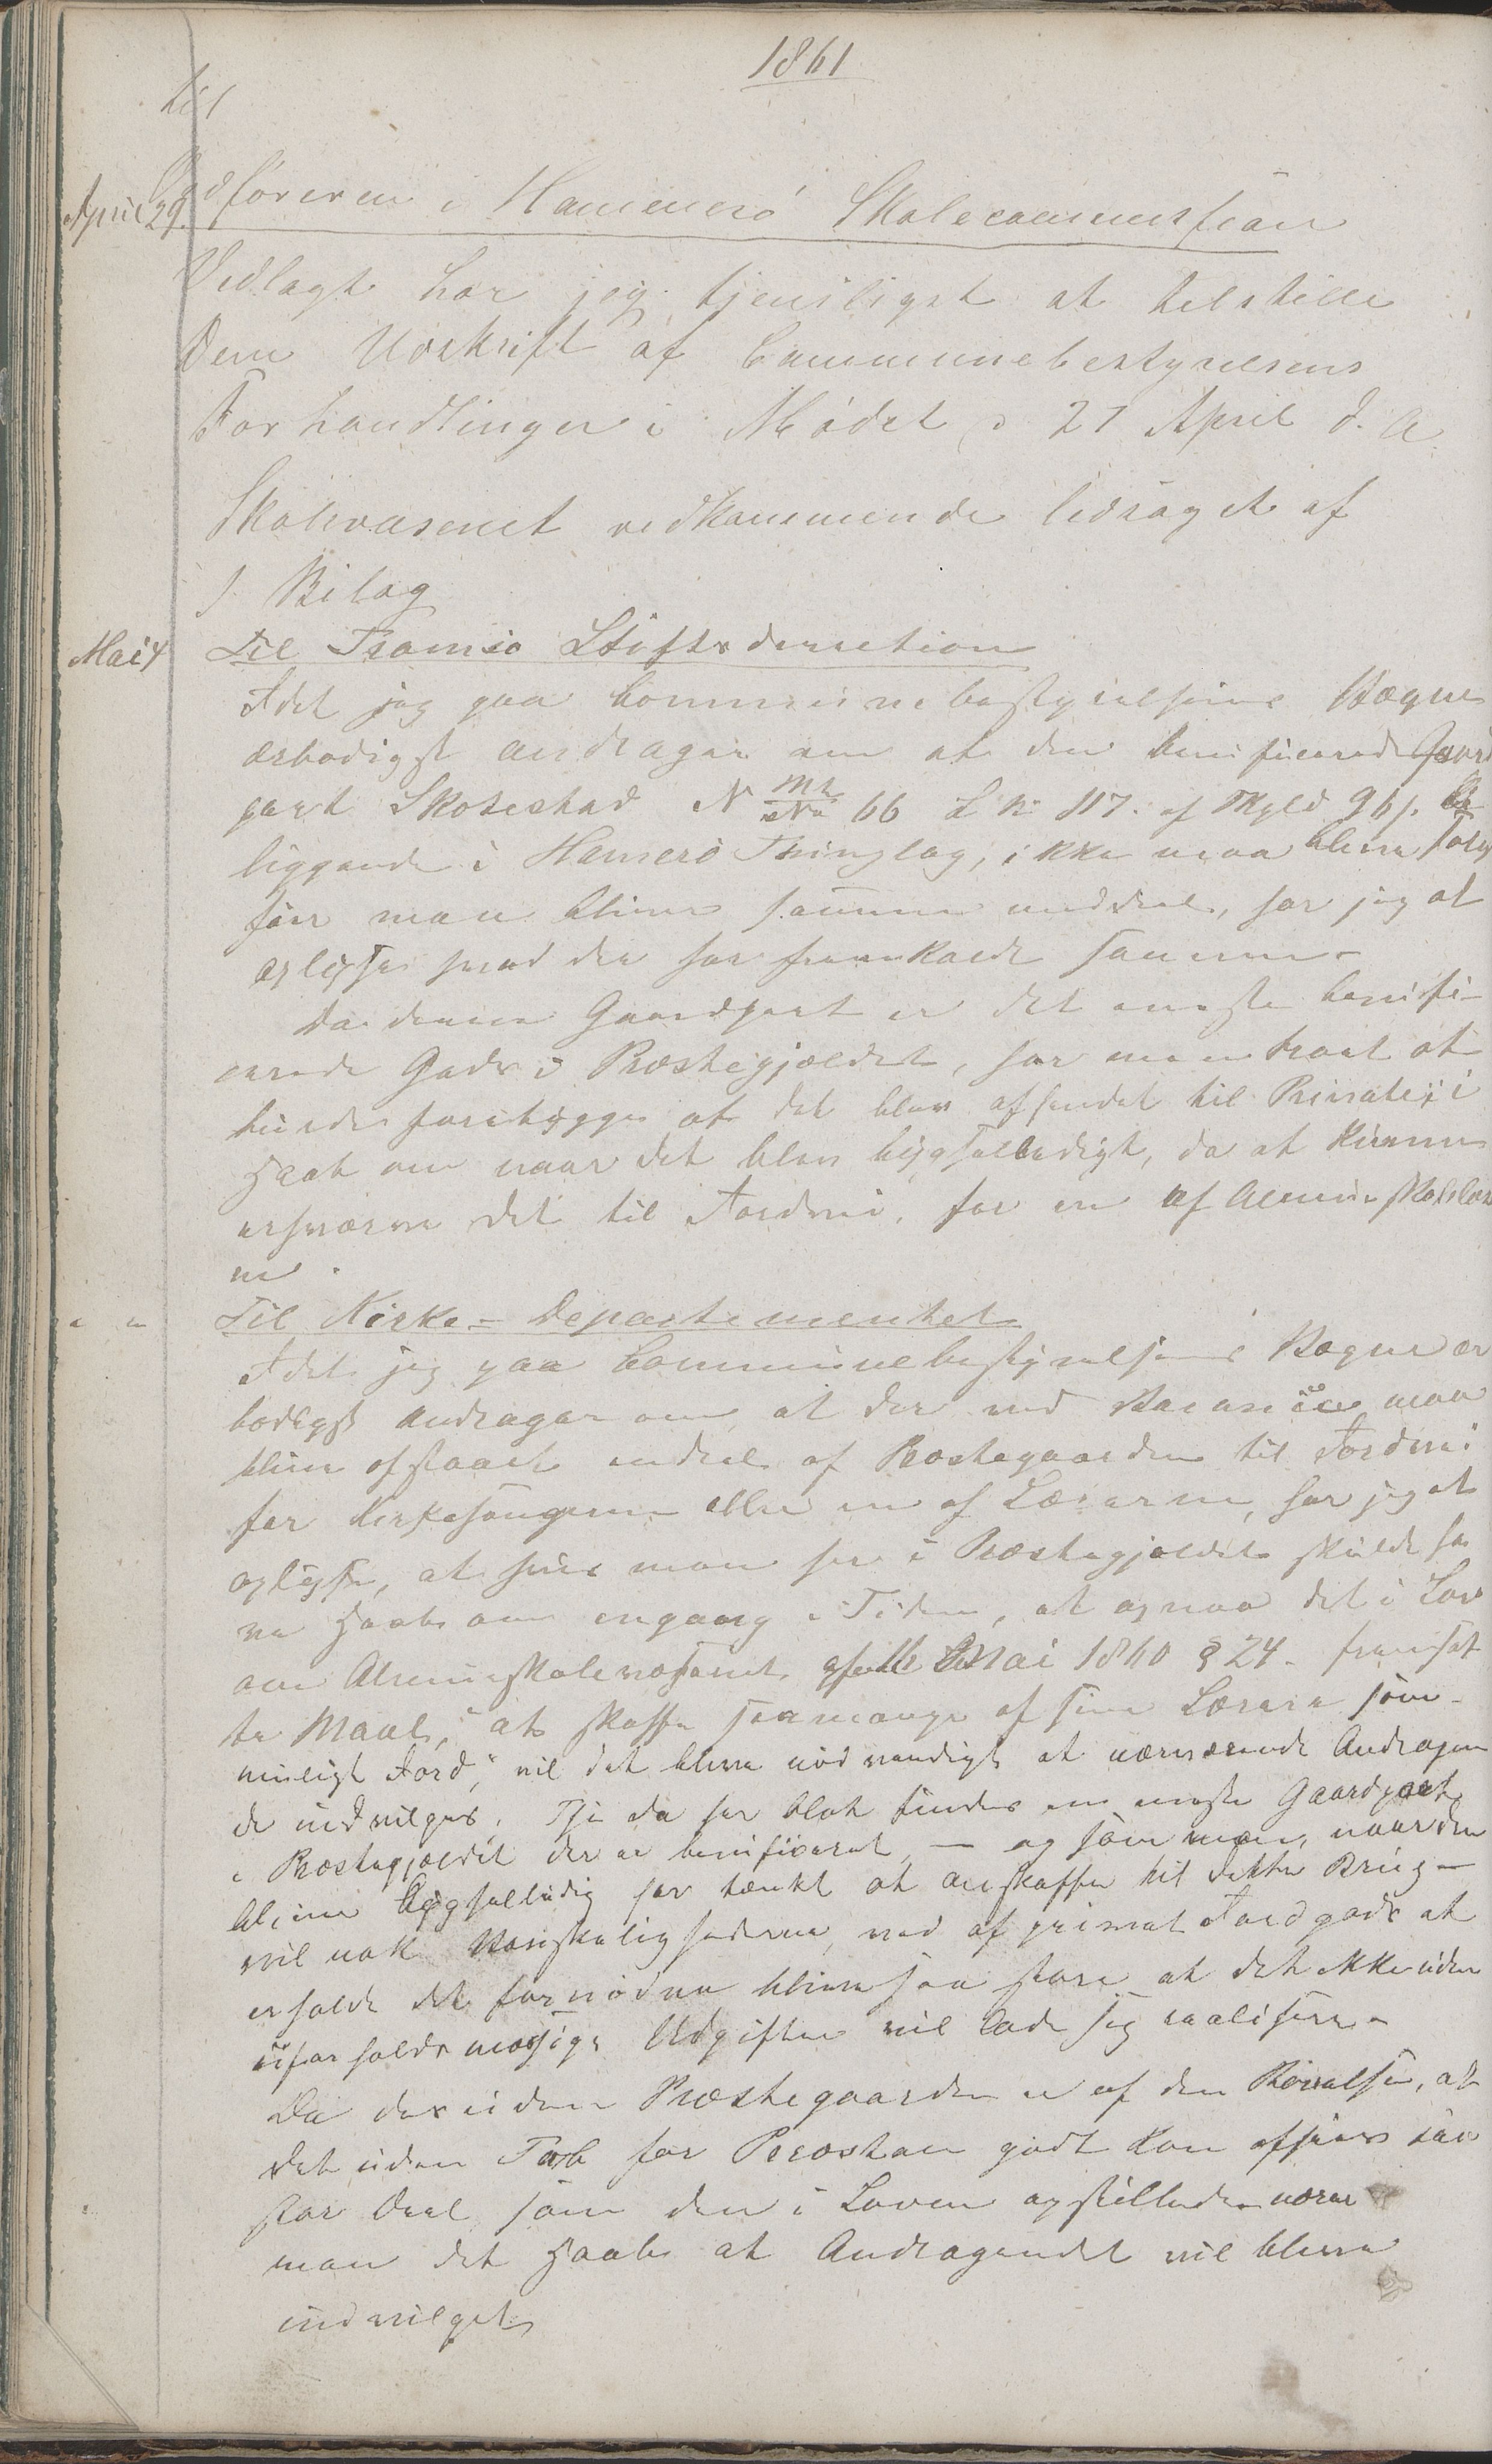 1861
til
April 29. Ordföreren i Hammerö Skolecommission
Vedlagt har jeg tjenstligst at tilstille
Dem Udskrift af Communebestyrelsens
Forhandlinger i Mödet d 27 April d. A.
Skolevæsenet vedkommende ledsaget af
1 Bilag
Mai 4 Til Tromsö Stiftsdirection
Idet jeg paa Communebestyrelsens Vegne
ærbödigst andrager om at den benificerede Gaard
part Skotestad N Mt No 66 L No 117. af Skyld
liggende i Hamerö Thinglag, ikke maa blive solgt
för man bliver samme meddeel, har jeg at
oplyse hvad der har fremkaldt samme
Da denne Gaardpart er det eneste benifi-
cerede Gods i Præstegjældet, har man troet at
burde forebygge at det blev afhendet til Private, i
Haab om naar det blev bygselledigt, da at kunne
erhverve det til Jordvei, for en af Almueskolelærer
ne.
" " Til Kirke-Departementet
Idet jeg paa Communebestyrelsens Vegne ær
bödigst andrager om at der ved Vacance maa
blive afstaaet endeel af Præstegaarden til Jordvei
for Kirkesangeren eller en af Lærerne, har jeg at
oplyse, at hvis man her i Præstegjældet skulde ha
ve Haab om engang i Tiden, at opnaa det i Lov
om Almueskolevæsenet af Mai 1860 § 24 fremsat
te Maal, "at skaffe saamange af sine Lærere som
muligt Jord", vil det blive nödvendigt at nærværende Andragen
de indvilges, Thi da her blot findes en eneste Gaardpart
i Præstegjældet der er benificeret, — og som man, naar den
bliver bygselledig har tænkt at anskaffe til dette Brug —
vil nok Vanskelighederne, ved af privat Jordgods at
erholde det fornödne blive saa store at det ikke uden
uforholdsmæssige Udgifter vil lade sig realisere.
Da desuden Præstegaarden er af den at
det uden Tab for Præsten godt kan afsees saa
stor Deel som den i Loven opstillede nærer
man det Haab at Andragendet vil blive
indvilget